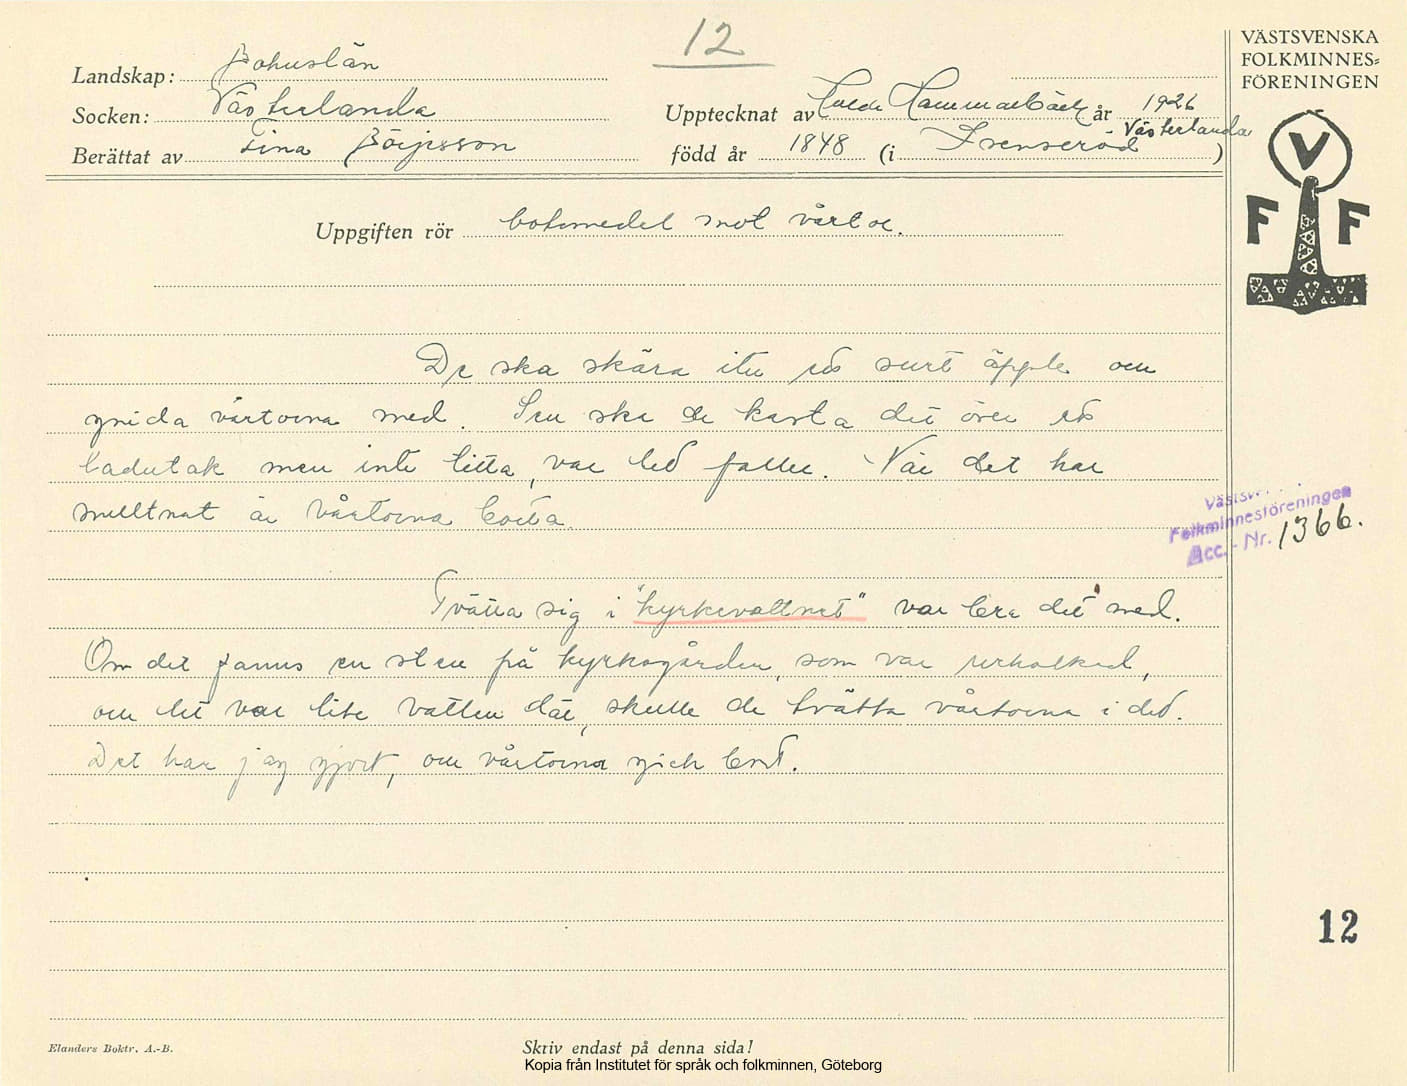 12
VÄSTSVENSKA
FOLKMINNES=
FÖRENINGEN
Landskap: Bohuslän
Socken: Västerlanda
Upptecknat av Hulda Hammarbäck år 1926
Berättat av Tina Börjesson
född år 1848 (i Svenseröd Västerlanda)
V
F F
Uppgiften rör botemedel mot vårtor.
De ska skära itu ett surt äpple och
gnida vårtorna med. Sen ska de kasta det över ett
ladutak men inte titta, var det faller. När det har
multnat är vårtorna borta.
Västsv
Folkminnesföreningen
Acc. - Nr. 1366.
Tvätta sig i "kyrkevattnet" var bra det med.
Om det fanns en sten på kyrkogården, som var urholkad,
och det var lite vatten där, skulle de tvätta vårtorna i det.
Det har jag gjort, och vårtorna gick bort.
12
Elanders Boktr. A.-B.
Skriv endast på denna sida!
Kopia från Institutet för språk och folkminnen, Göteborg